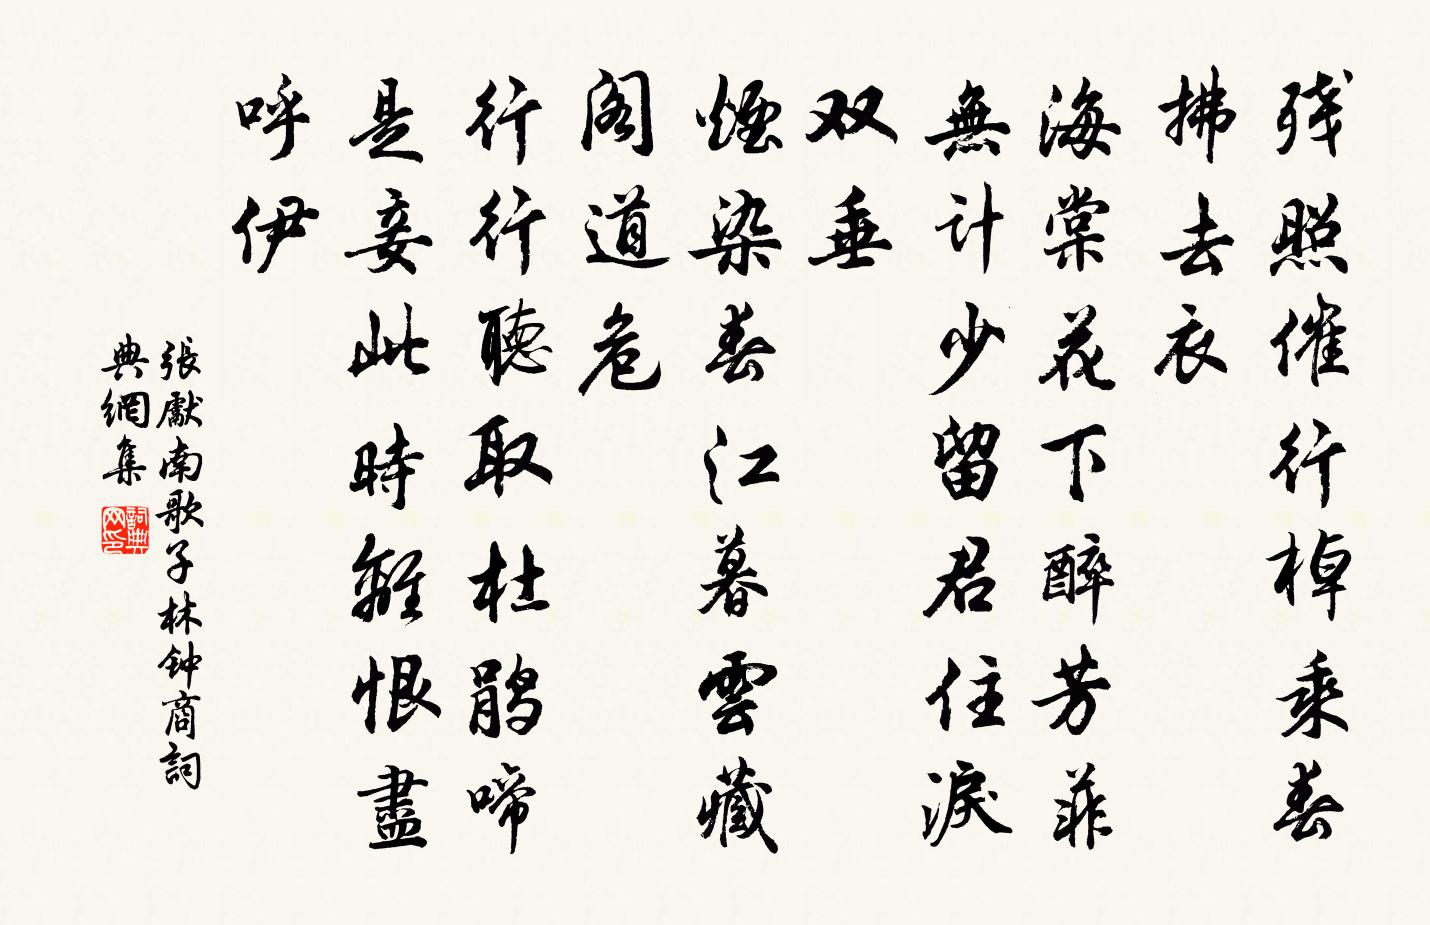 残照催行棹乘春
拂去衣
海棠花下醉芳菲
無计少留君住淚
双垂
煙染春江暮雲藏
阁道危
行行聽取杜鹃啼
是妾此時離恨盡
呼伊
張獻南歌子林钟商詞
典網集
詞典网印